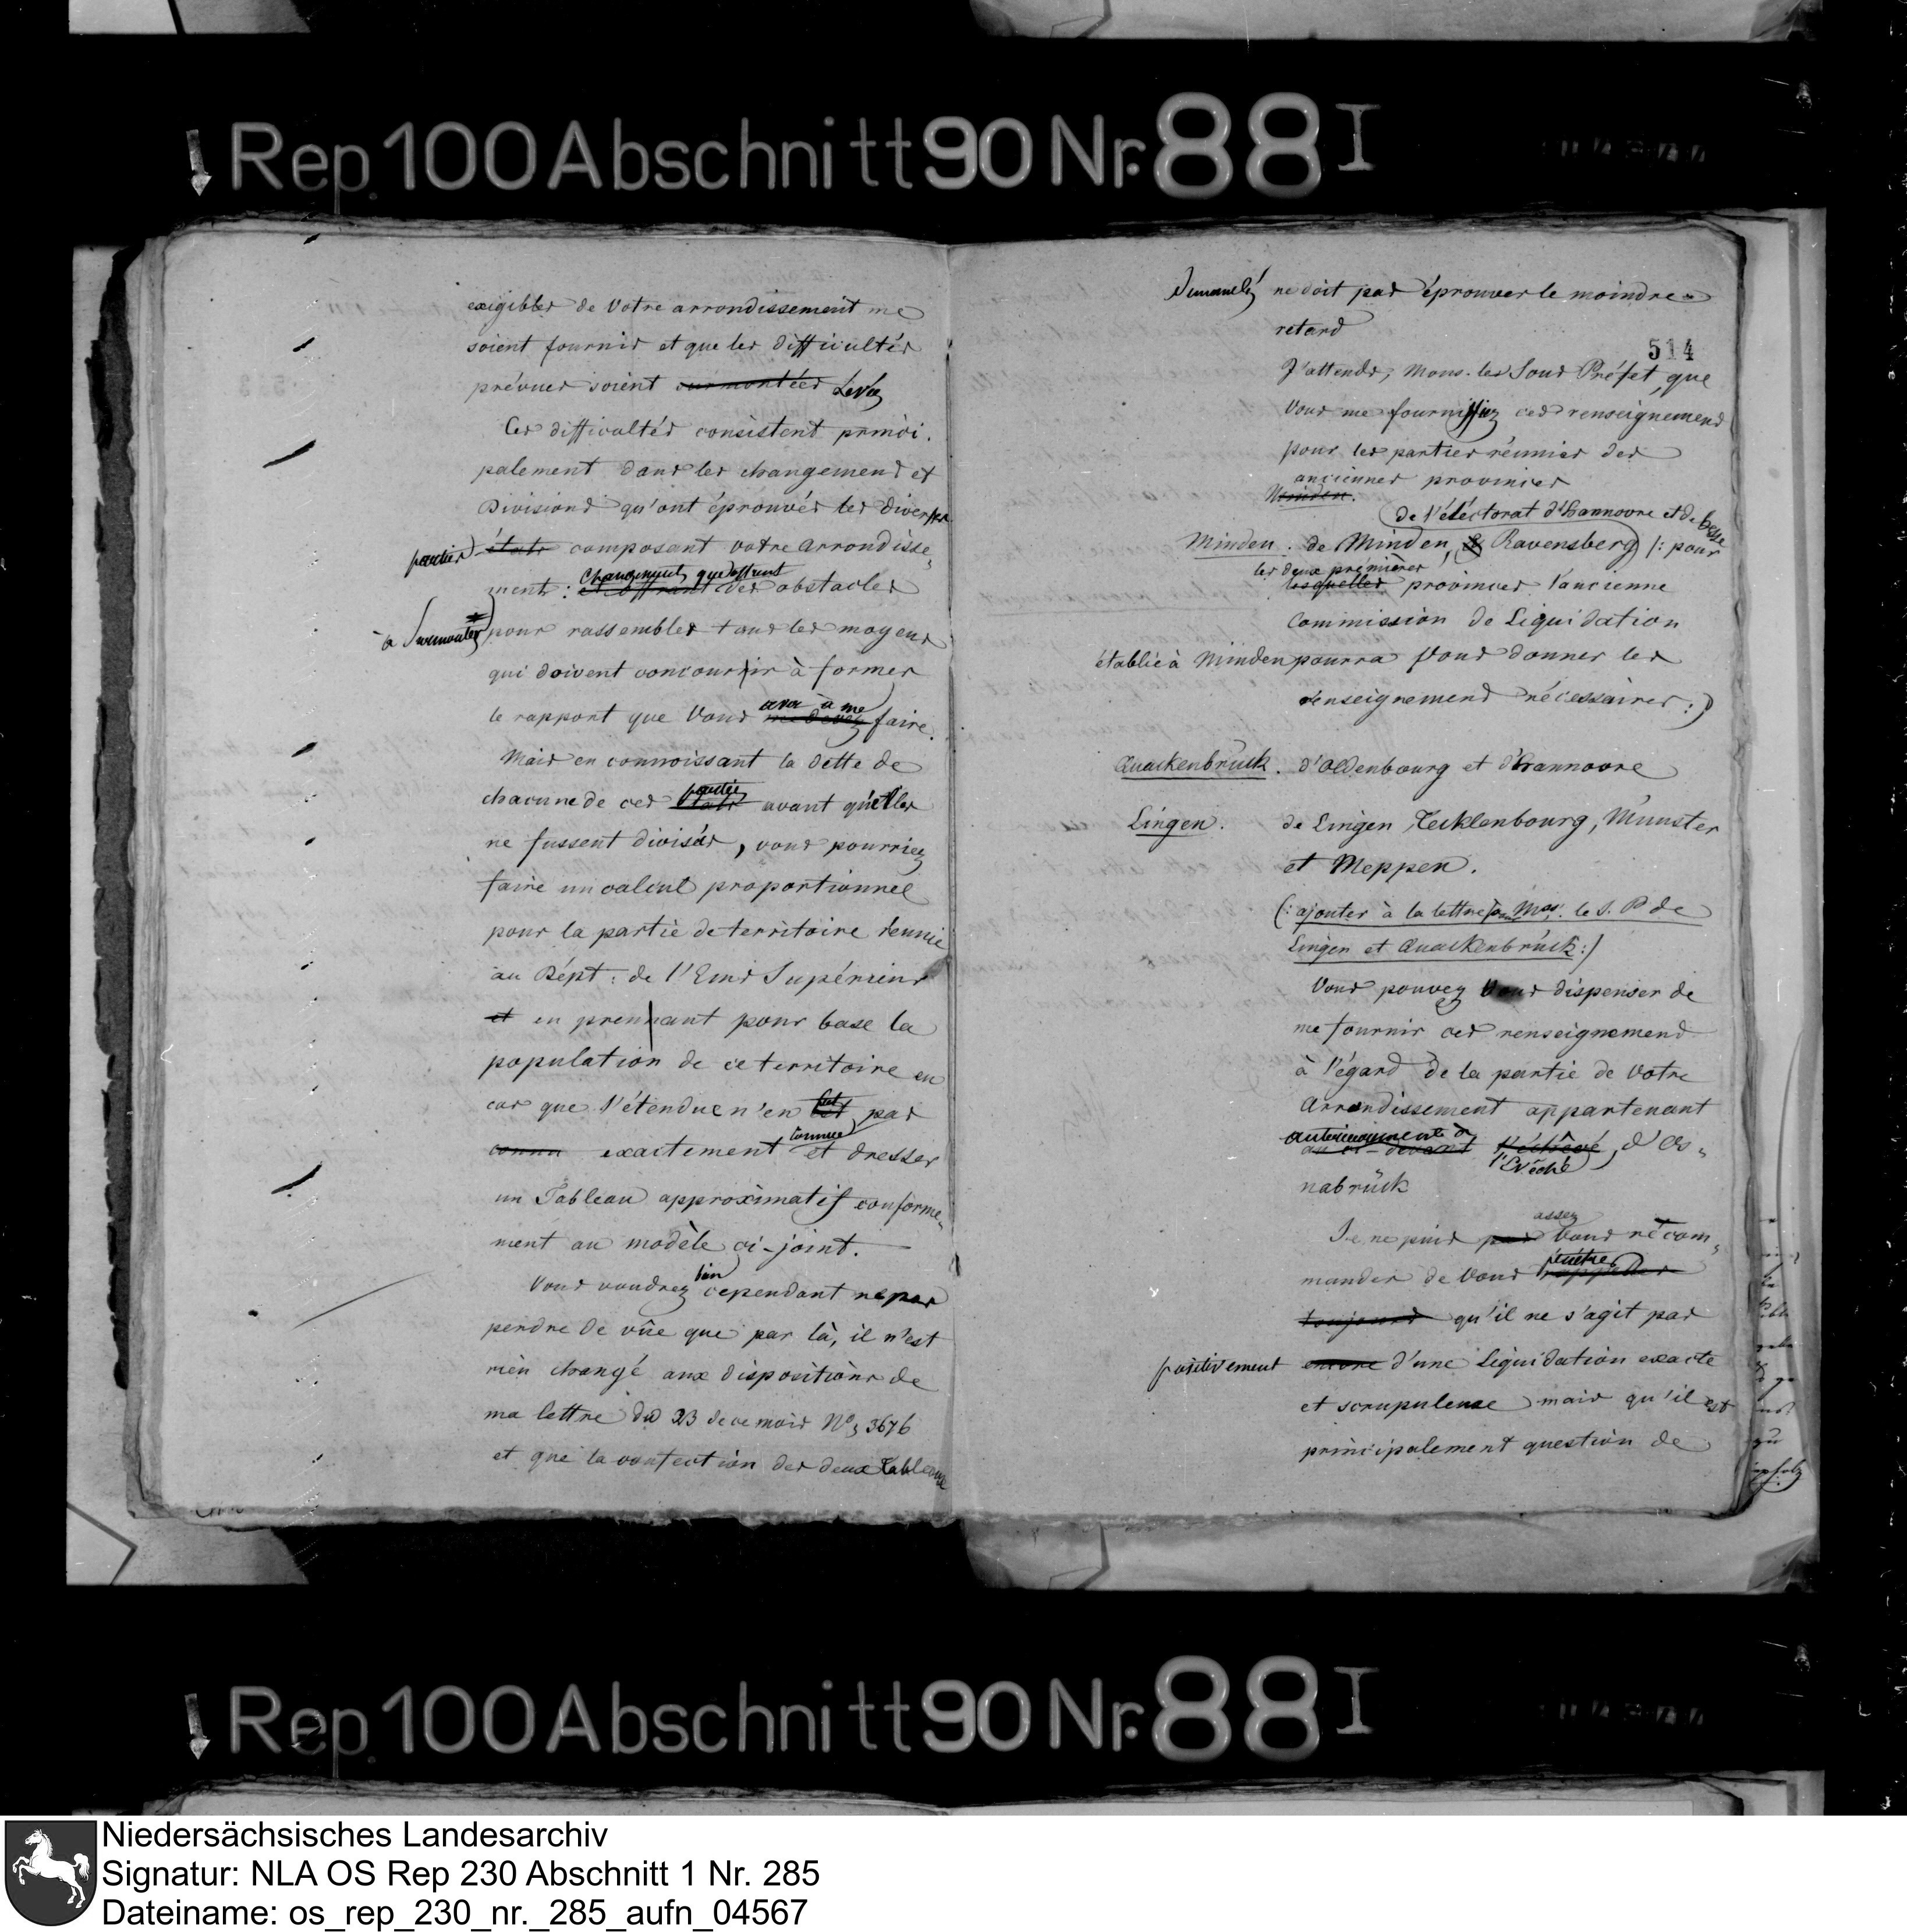 Rep 100 Abschnitt 90 Nr. 88 I
exigibles de Votre arrondissement me
soient fournis et que les difficultés
prévues soient surmontées Levées
Ces difficultés consistent princi-
palement dans les changemens et
Divisions qu'ont éprouvés les diverses
parties états composant votre arrondisse-
Changements que offrent
ment: et offrant des obstacles
à surmonter pour rassembler tous les moyens
qui doivent concourrir à former
avez à me
le rapport que Vous me devez faire.
Mais en connoissant la dette de
parties
chacune de ces états avant qu'elles
ne fussent divisés, vous pourriez
faire un calcul proportionnel
pour la partie de territoire réunie
au Dépt: de l'Ems Supérieur
et en prennant pour base la
population de ce territoire en
cas que l'étendue n'en est pas
connue
connu exactement et dresser
un Tableau approximatif conforme-
ment au modèle ci-joint.
bien
Vous voudrez cependant ne pas
perdre de vûe que par là, il n'est
rien changé aux dispositions de
ma lettre du 23 de ce mois No, 3676
et que la confection des deux tableaux
demandés ne doit pas éprouver le moindre
retard
514
J'attends, Mons. les Sous Préfet, que
Vous me fournissiez ces renseignemens
pour les parties réunies des
anciennes provinces
Minden.
de l'électorat d'Hannovre et de hesse
Minden. de Minden, & Ravensberg (: pour
les deux premières
lesquelles provinces l'ancienne
Commission de Liquidation
établie à Minden pourra Vous donner les
renseignemens nécessaires :)
Quackenbrück. d'Oldenbourg et d'Hannovre
Lingen. de Lingen, Tecklenbourg, Munster
et Meppen.
(: ajouter à la lettre pour Mrs. le S. P de
Lingen et Quackenbrück :)
Vous pouvez Vous dispenser de
me fournir ces renseignemens
à l'égard de la partie de Votre
Arrondissement appartenant
antérieurement à
au ci-devant l'évêché, d'Os-
l'Evêché
nabrück
assez
Je ne puis pas Vous récom-
pénétrer
mander de Vous rappeller
toujours qu'il ne s'agit pas
positivement encore d'une Liquidation exacte
et scrupuleuse mais qu'il est
principalement question de
Rep 100 Abschnitt 90 Nr. 88 I
Niedersächsisches Landesarchiv
Signatur: NLA OS Rep 230 Abschnitt 1 Nr. 285
Dateiname: os_rep_230_nr._285_aufn_04567